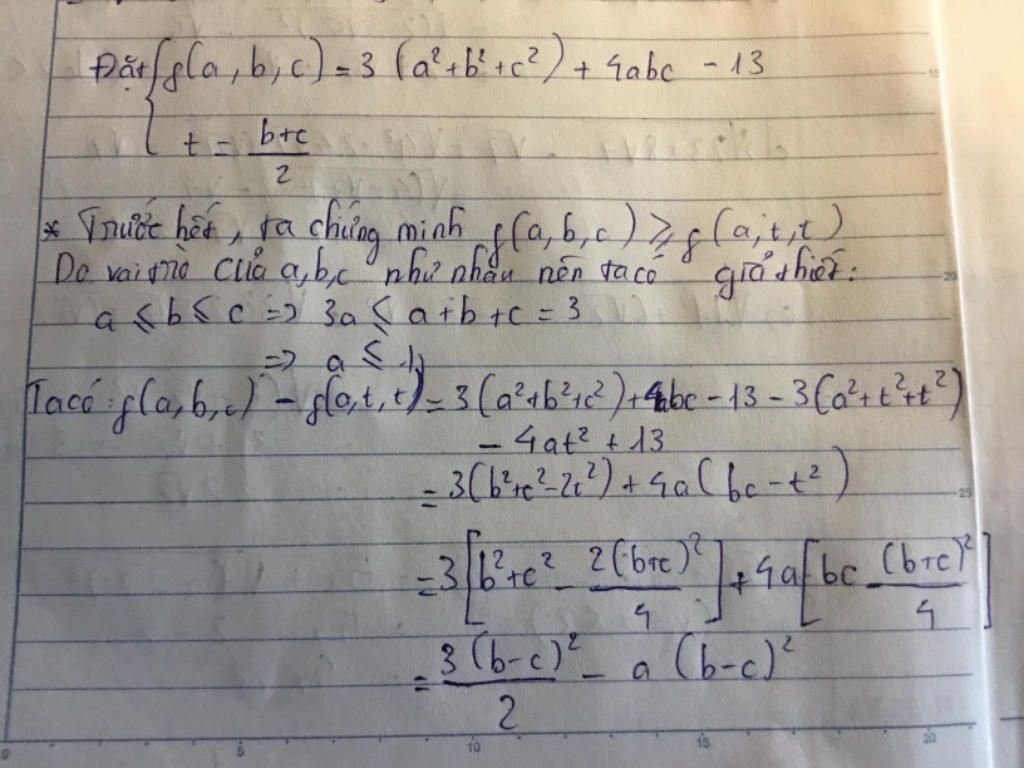 Đặt { f(a, b, c) = 3 (a² + b² + c²) + 4abc - 13
t = (b+c)/2
* Trước hết, ta chứng minh f(a, b, c) ⩾ f(a, t, t)
Do vai trò của a, b, c như nhau nên ta có giả thiết:
a ⩽ b ⩽ c => 3a ⩽ a + b + c = 3
=> a ⩽ 1
Ta có: f(a, b, c) - f(a, t, t) = 3(a² + b² + c²) + 4abc - 13 - 3(a² + t² + t²)
- 4at² + 13
= 3(b² + c² - 2t²) + 4a(bc - t²)
= 3[b² + c² - 2(b+c)²/4] + 4a[bc - (b+c)²/4]
= 3(b-c)²/2 - a(b-c)²
0 5 10 15 20
15
20
25